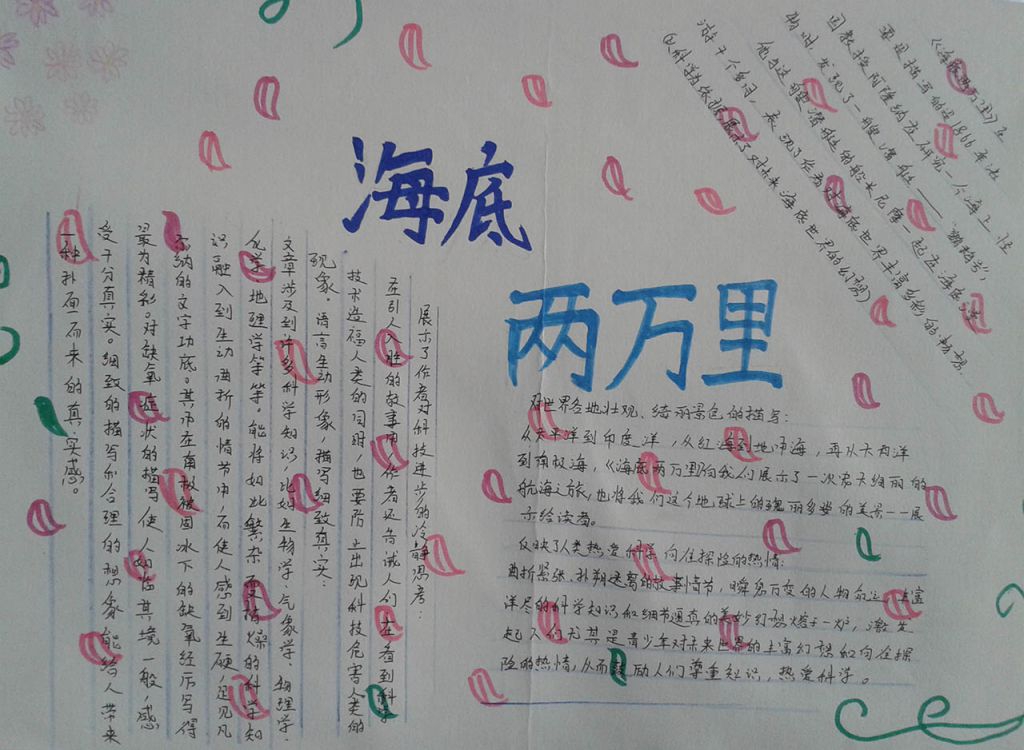 海底
两万里
《海底两万里》主
要是描写的是1866年法
国教授阿隆纳在研究一个海上怪
物时，发现了一艘潜艇——鹦鹉号，
他与这艘潜艇的船长尼摩一起在海底
游十个多月，表现了作者对海底世界丰富多彩的
以科学为依据展示了对未来海底世界的幻想）
展示了作者对科技进步的冷静思考：
在引人入胜的故事中，作者还告诫人们，在看到科学
技术造福人类的同时，也要防止出现科技危害人类的
现象。语言生动形象，描写细致真实：
文章涉及到许多科学知识，比如生物学、气象学、物理学、
化学、地理学等等。能将如此繁杂而枯燥的科学知
识融入到生动曲折的情节中，而使人感到生硬，足见凡
尔纳的文字功底。其中在南极被困冰下的缺氧经历写得
最为精彩。对缺氧症状的描写，使人如临其境一般，感
受十分真实。细致的描写和合理的想象能给人带来
一种扑面而来的真实感。
对世界各地壮观、绮丽景色的描写：
从太平洋到印度洋，从红海到地中海，再从大西洋
到南极海，《海底两万里》向我们展示了一次宏大绚丽的
航海之旅，也将我们这个地球上的瑰丽多姿的美景——展
示给读者。
反映了人类热爱科学向往探险的热情：
曲折紧张、扑朔迷离的故事情节，瞬息万变的人物命运，丰富
详尽的科学知识和细节逼真的美妙幻想熔于一炉，激发
起人们尤其是青少年对未来世界的丰富幻想和向往探
险的热情，从而鼓励人们尊重知识，热爱科学。